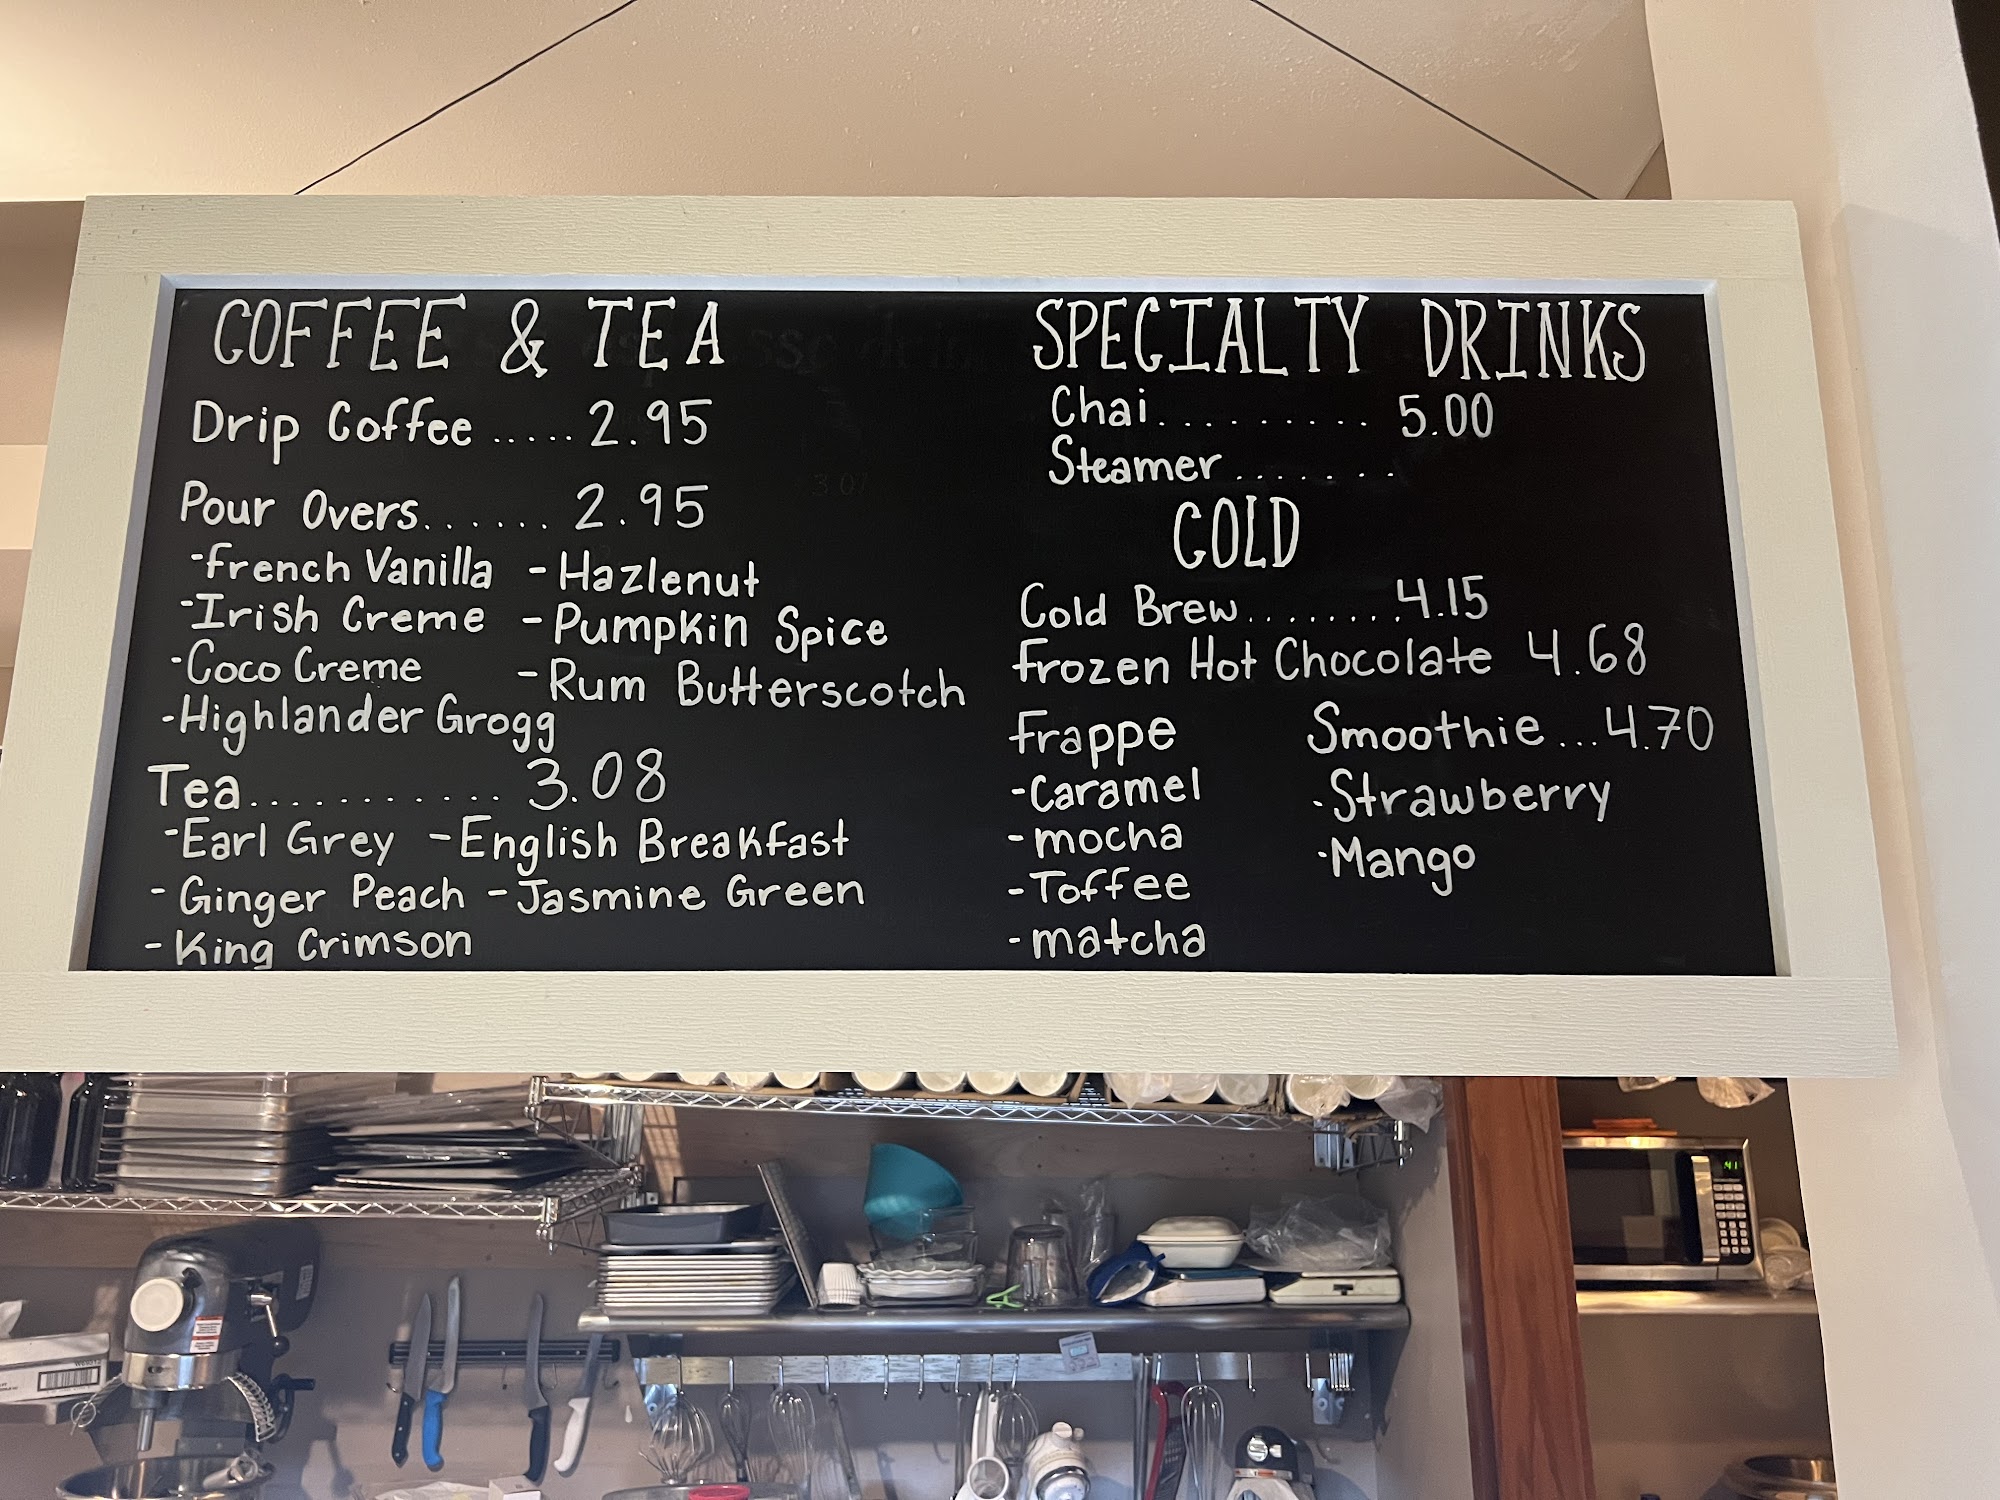 COFFEE & TEA
Drip Coffee ..... 2.95
Pour Overs...... 2.95
-French Vanilla -Hazlenut
-Irish Creme -Pumpkin Spice
-Coco Creme -Rum Butterscotch
-Highlander Grogg
Tea........... 3.08
-Earl Grey -English Breakfast
-Ginger Peach -Jasmine Green
-King Crimson
SPECIALTY DRINKS
Chai.......... 5.00
Steamer.......
COLD
Cold Brew........4.15
Frozen Hot Chocolate 4.68
Frappe
-Caramel
-mocha
-Toffee
-matcha
Smoothie...4.70
-Strawberry
-Mango